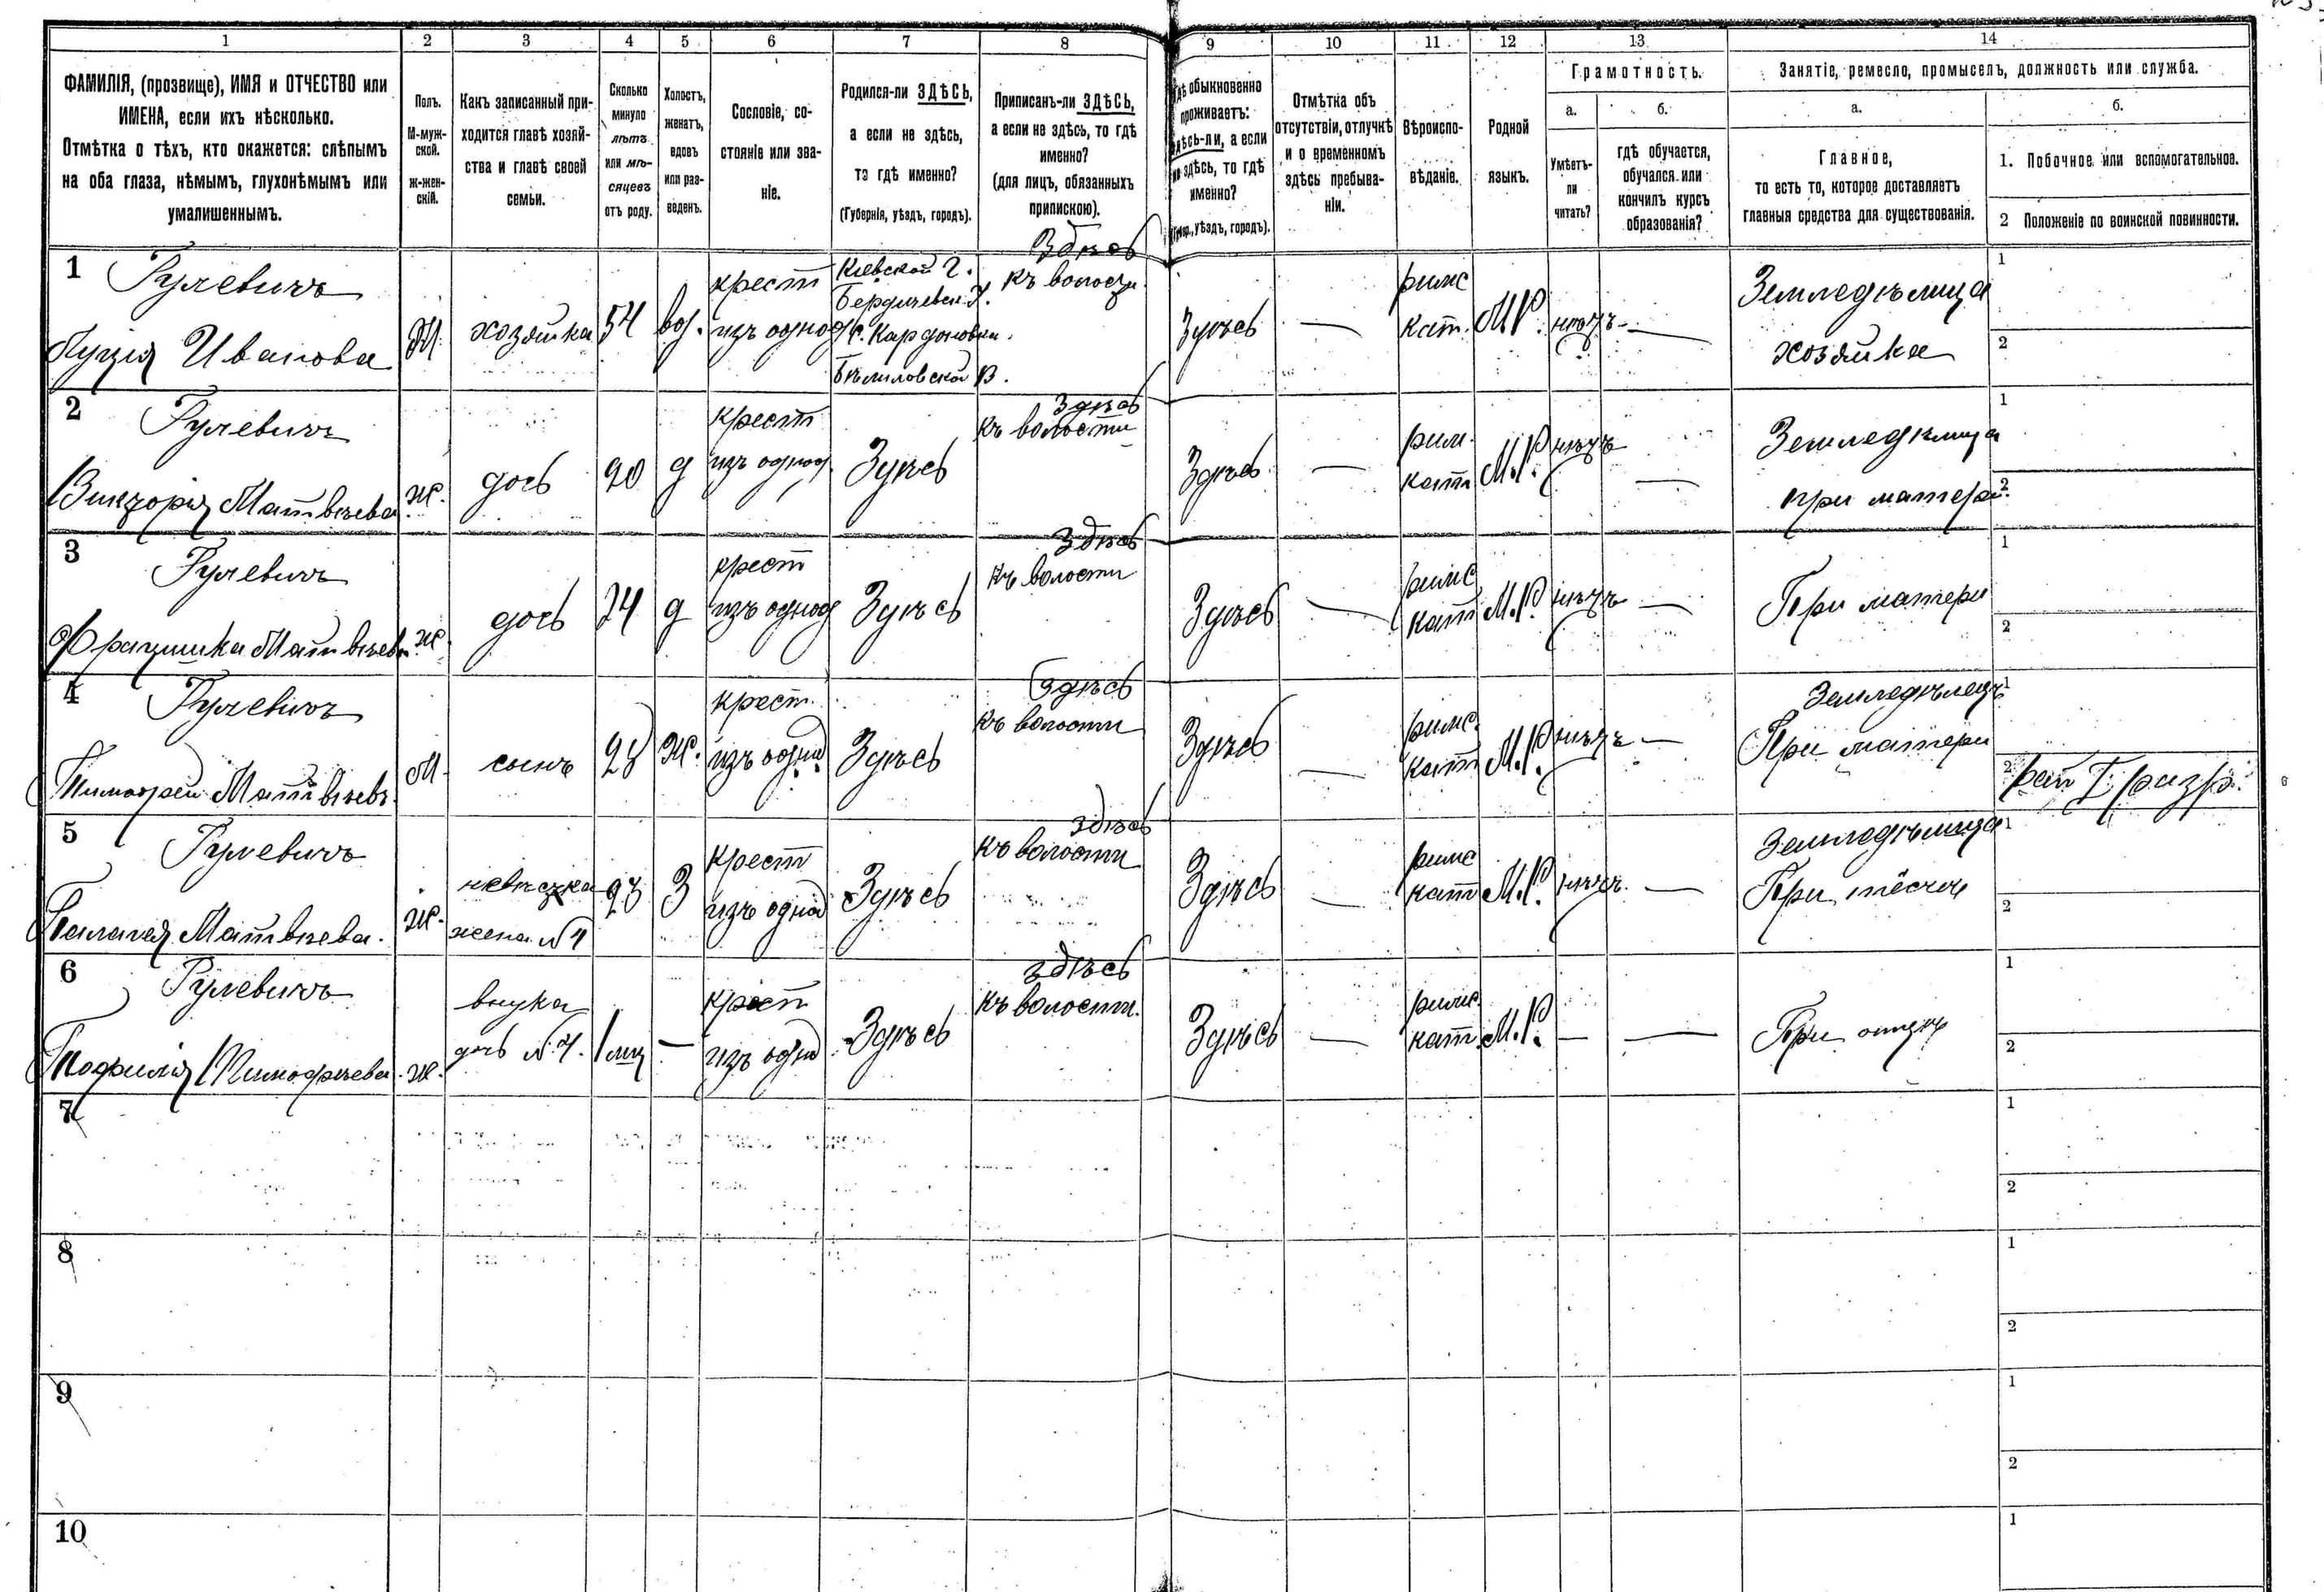 1 2 3 4 5 6 7 8 9 10 11 12 13 14
ФАМИЛІЯ, (прозвище), ИМЯ и ОТЧЕСТВО или
ИМЕНА, если ихъ нѣсколько.
Отмѣтка о тѣхъ, кто окажется: слѣпымъ
на оба глаза, нѣмымъ, глухонѣмымъ или
умалишеннымъ.
Полъ.
М-муж-
ской.
Ж-жен-
скій.
Какъ записанный при-
ходится главѣ хозяй-
ства и главѣ своей
семьи.
Сколько
минуло
лѣтъ
или мѣ-
сяцевъ
отъ роду.
Холостъ,
женатъ,
вдовъ
или раз-
веденъ.
Сословіе, со-
стояніе или зва-
ніе.
Родился-ли ЗДѢСЬ,
а если не здѣсь,
то гдѣ именно?
(Губернія, уѣздъ, городъ).
Приписанъ-ли ЗДѢСЬ,
а если не здѣсь, то гдѣ
именно?
(для лицъ, обязанныхъ
припискою).
обыкновенно
проживаетъ:
здѣсь-ли, а если
не здѣсь, то гдѣ
именно?
уѣздъ, городъ).
Отмѣтка объ
отсутствіи, отлучкѣ
и о временномъ
здѣсь пребыва-
ніи.
Вѣроиспо-
вѣданіе.
Родной
языкъ.
Грамотность.
а.
Умѣетъ-
ли
читать?
б.
гдѣ обучается,
обучался или
кончилъ курсъ
образованія?
Занятіе, ремесло, промыселъ, должность или служба.
а.
Главное,
то есть то, которое доставляетъ
главныя средства для существованія.
б.
1. Побочное или вспомогательное.
2 Положеніе по воинской повинности.
1
Рулевичъ
Луція Иванова
Ж.
хозяйка
54
вд.
крест
изъ однод
Кіевской г.
Бердичевск. у.
с. Кардоновки.
Бѣлиловской В.
Здѣсь
къ волости
Здѣсь
—
римс
кат.
М.Р.
нѣтъ
—
Земледѣлица
хозяйка
1
2
2
Рулевичъ
Викторія Матвѣева
ж.
дочь
д
крест
изъ однод
Здѣсь
Здѣсь
къ волости
Здѣсь
—
рим.
кат
М.Р.
нѣтъ
—
Земледѣлица
при матери.
1
2
3
Рулевичъ
Францишка Матвѣева
ж.
дочь
24
д
крест
изъ однод
Здѣсь
Здѣсь
къ волости
Здѣсь
—
римс
кат
М.Р.
нѣтъ
—
При матери
1
2
4
Рулевичъ
Тимофей Матвѣевъ.
М.
сынъ
28
ж.
крест.
изъ однод
Здѣсь
Здѣсь
къ волости
Здѣсь
—
римс.
кат
М.Р.
нѣтъ
—
Земледѣлецъ
При матери
1
2
рат I разр.
5
Рулевичъ
Пелагея Матвѣева.
ж.
невѣстка
жена №4
З
крест
изъ однод
Здѣсь
Здѣсь
къ волости
Здѣсь
—
римс
кат
М.Р.
нѣтъ.
—
Земледѣлица
1
2
6
Рулевичъ
Теофилія Тимофеева.
ж.
внука
дочь №4.
1 мц
—
крест
изъ однод
Здѣсь
здѣсь
къ волости.
Здѣсь
—
римс.
кат.
М.Р.
—
—
При отцѣ
1
2
7
1
2
8
1
2
9
1
2
10
1